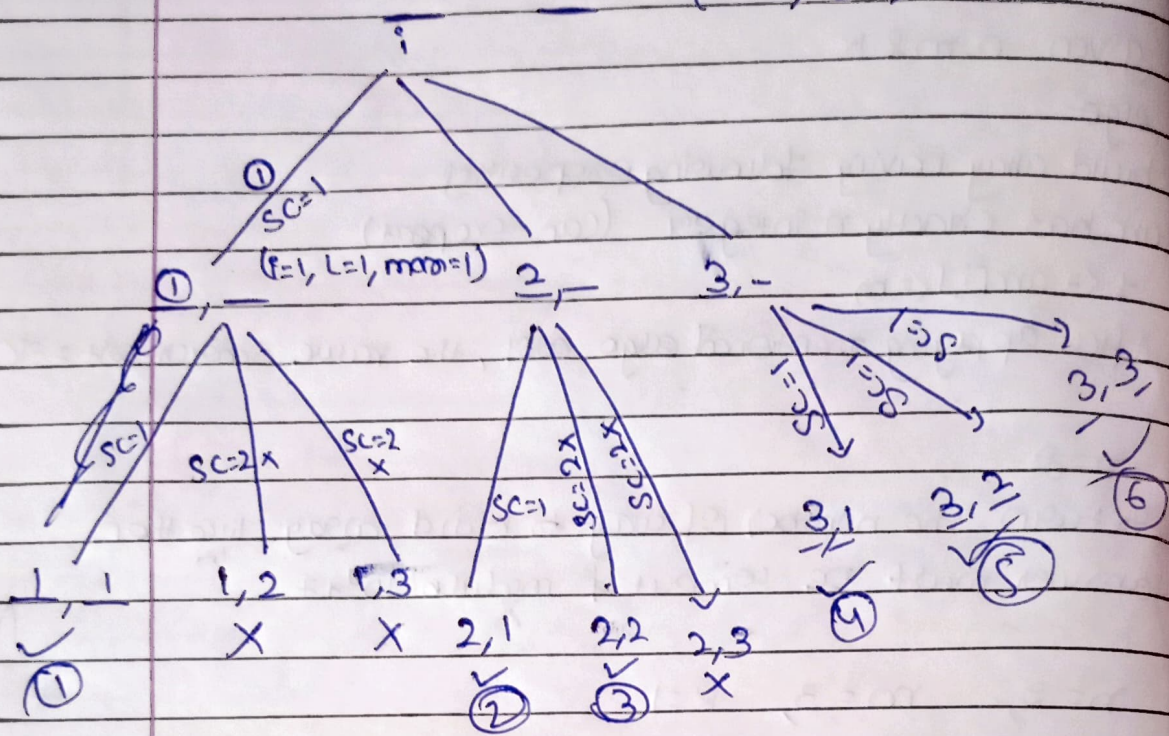 i
①
SC=1
(i=1, L=1, max=1)
①, _
2, -
3, -
SC=1
SC=2 x
SC=2
x
SC=1
SC=2x
SC=2x
SC=1
SC=1
SC=1
1, 1
1,2
1,3
2,1
2,2
2,3
3,1
3,2
3,3,
✓
X
X
✓
✓
X
✓
✓
✓
①
②
③
④
⑤
⑥